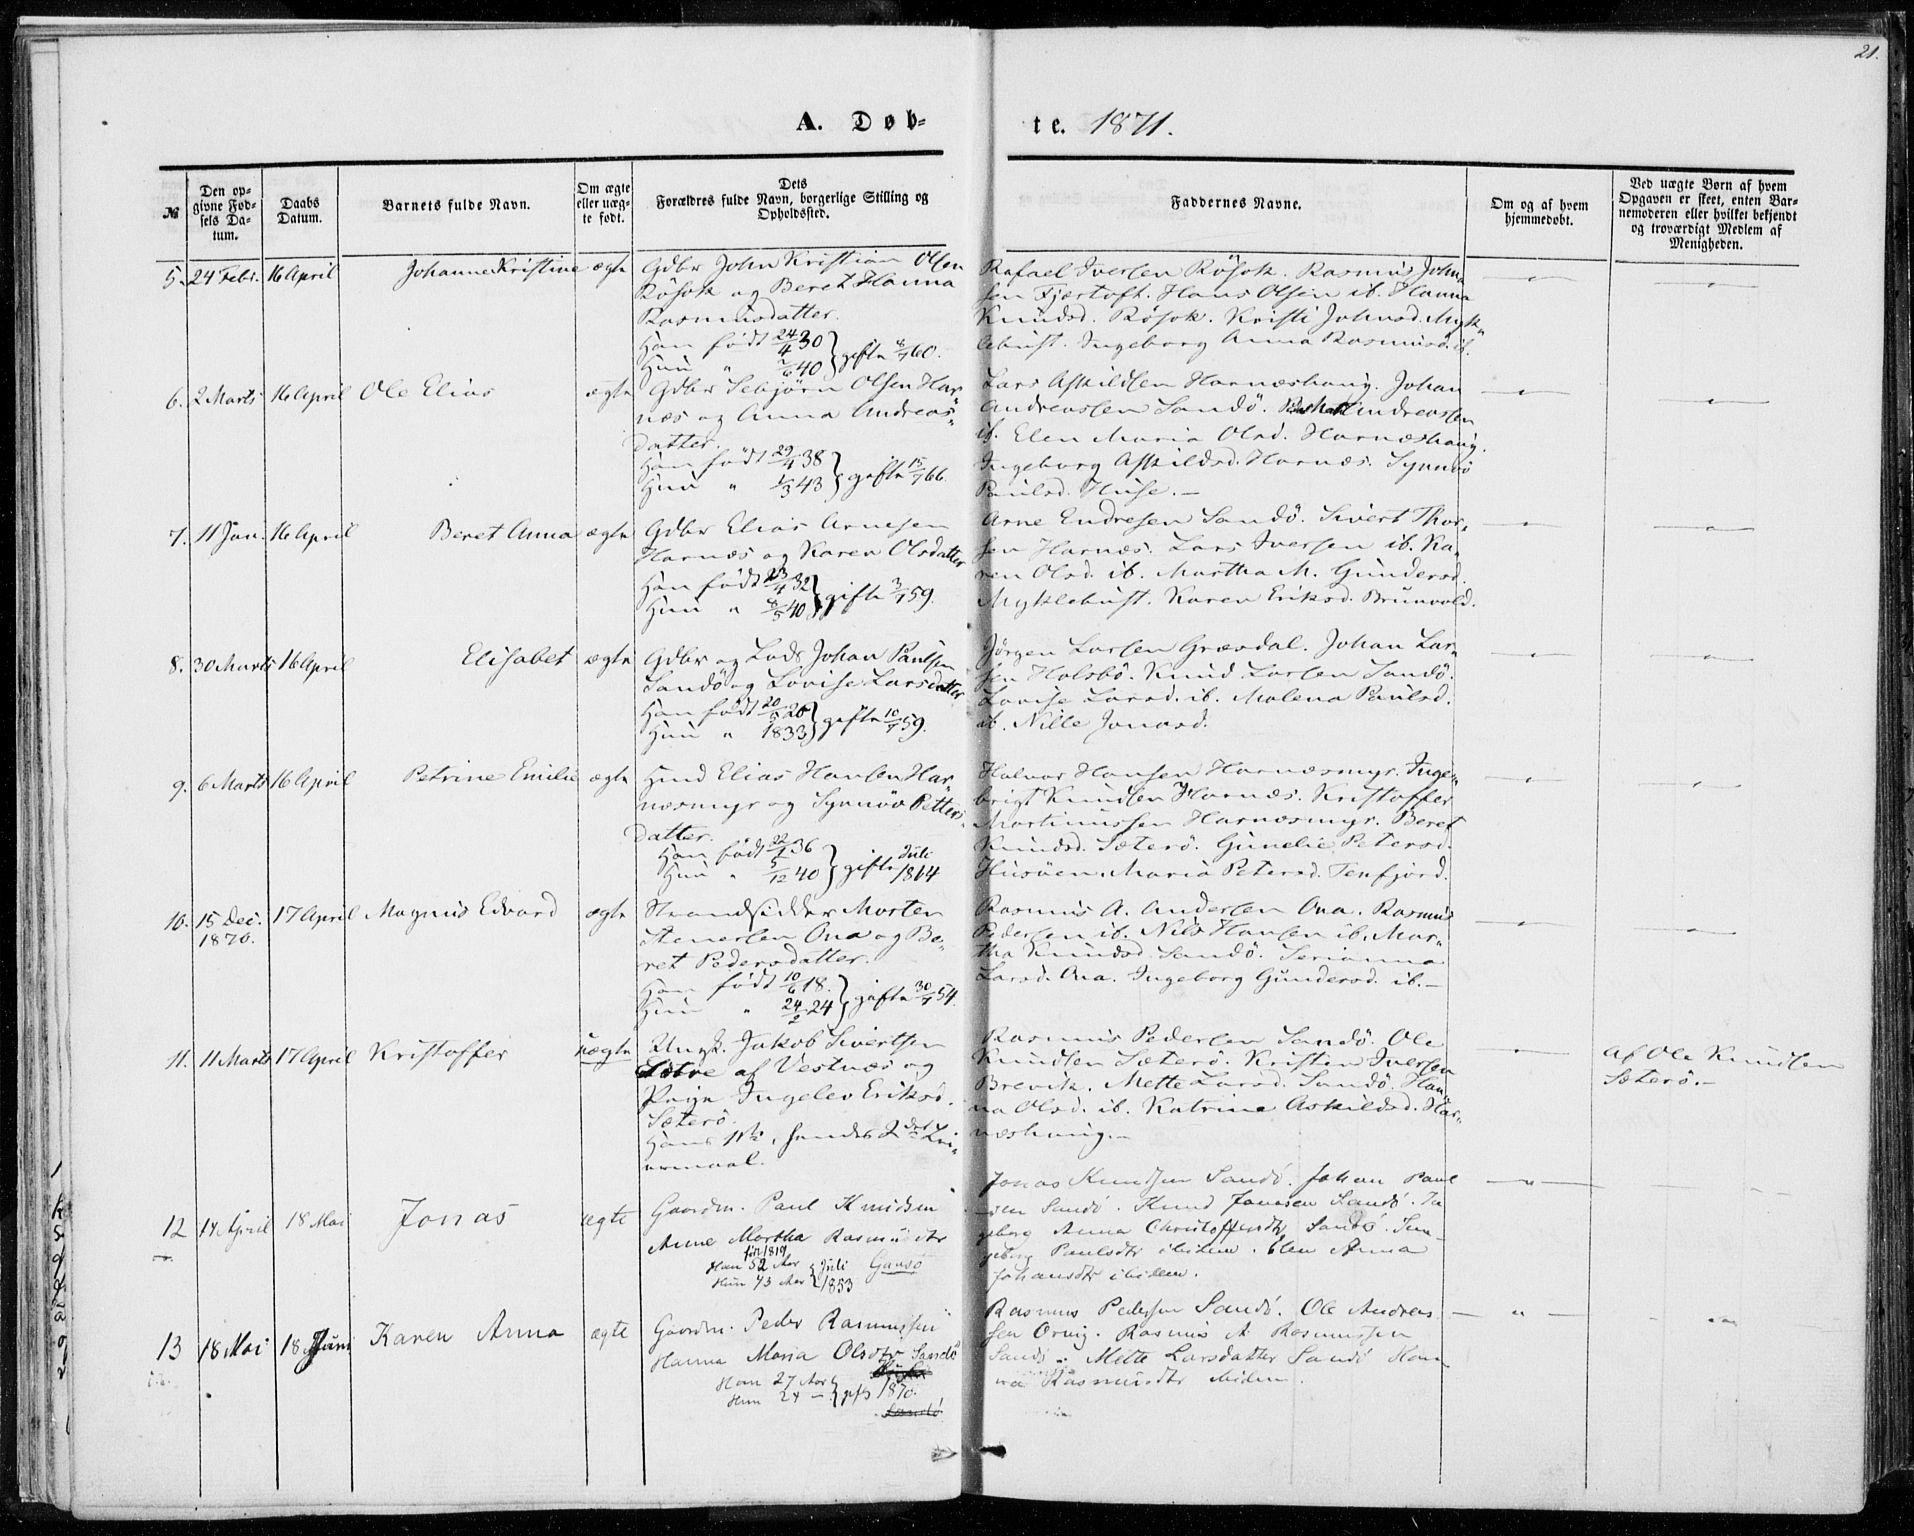 21.
A. Døb-
te. 1871.
№
Den op-
givne Fød-
sels Da-
tum.
Daabs
Datum.
Barnets fulde Navn.
Om ægte
eller uæg-
te født.
Dets
Forældres fulde Navn, borgerlige Stilling og
Opholdssted.
Faddernes Navne.
Om og af hvem
hjemmedøbt.
Ved uægte Børn af hvem
Opgaven er skeet, enten Bar-
nemoderen eller hvilket bekjendt
og troværdigt Medlem af
Menigheden.
5. 24 Febr. 16 April Johanne Kristine ægte
Gdbr John Kristian Olsen
Rösok og Beret Hanna
Rasmusdatter.
Han født 24/4 30
Hun " 40 } gifte 60.
Rafael Iversen Rösok. Rasmus John-
sen Fjærtoft. Hans Olsen ib. Hanna
Knudsd. Rösok. Kristi Johnsd. Myk-
lebust. Ingeborg Anna Rasmusd. ib.
6. 2 Marts 16 April Ole Elias ægte
Gdbr Sebjörn Olsen Har-
næs og Anna Andreas-
datter.
Han født 29/4 38
Hun " 1/3 43 } gifte 15/7 66.
Lars Askildsen Harnæshaug. Johan
Andreassen Sandö. Andreassen
ib. Elen Maria Olsd. Harnæshaug.
Ingeborg Askildsd. Harnæs. Synnöv
Paulsd. Huse.-
7. 11 Jan. 16 April Beret Anna ægte
Gdbr Elias Arnesen
Harnæs og Karen Olsdatter
Han født 23/4 32
Hun " 8/5 40 } gifte 3/7 59.
Arne Endresen Sandö. Sivert Thor-
sen Harnæs. Lars Iversen ib. Ka-
ren Olsd. ib. Martha M. Gundersd.
Myklebust. Karen Eriksd. Brunvold.
8. 30 Marts 16 April Elisabet ægte
Gdbr og Lods Johan Paulsen
Sandö og Lovise Larsdatter
Han født 20/5 26
Hun " 1833 } gifte 10/7 59.
Jörgen Larsen Græsdal. Johan Lar-
sen Holsbö. Knud Larsen Sandö.
Lovise Larsd. ib. Malena Paulsd.
ib. Nille Jonasd.
9. 6 Marts 16 April Petrine Emilie ægte
Hmd Elias Hansen Har-
næsmyr og Synnöv Petters-
datter.
Han født 22/1 36
Hun " 5/12 40 } gifte Juli 1864
Halvor Hansen Harnæsmyr. Inge-
brigt Knudsen Harnæs. Kristoffer
Martinussen Harnæsmyr. Beret
Knudsd. Sæterö. Gunelie Petersd.
Husöen. Maria Petersd. Tenfjord.
10. 15 Dec. 17 April Magnus Edvard ægte
1870.
Strandsidder Morten
Stenersen Ona og Be-
ret Pedersdatter.
Han født 10/6 18.
Hun " 24/2 24 } gifte 30/7 54.
Rasmus A. Andersen Ona. Rasmus
Pedersen ib. Nils Hansen ib. Mar-
tha Knudsd. Sandö. Serianna
Larsd. Ona. Ingeborg Gundersd. ib.-
11. 11 Marts 17 April Kristoffer uægte
Ungk. Jakob Sivertsen
af Vestnæs og
Pige Ingelev Eriksd.
Sæterö.
Hans 1ste, hendes 2det Lei-
ermaal.
Rasmus Pedersen Sandö. Ole
Knudsen Sæterö. Kristen Iversen
Brevik. Mette Larsd. Sandö. Han-
na Olsd. ib. Katrine Askildsd. Har-
næshaug.-
Af Ole Knudsen
Sæterö.-
12 14 April 18 Mai Jonas ægte
Gaardm. Paul Knudsen
Anne Martha Rasmusdtr
før 1819
Han 52 Aar
Hun 43 Aar } Juli 1853 Gausö
Jonas Knudsen Sandö. Johan Paul
sen Sandö. Knud Jonasen Sandö. In
geborg Anna Christoffersdtr Sandö. In-
geborg Paulsdtr ibidem. Elen Anna
Johansdtr ibidem.
13 18 Mai 18 Juni Karen Anna ægte
Gaardm. Peder Rasmussen
Hanna Maria Olsdtr Sandö
Han 27 Aar
Hun 24 - } gift 1870.
Sandö
Rasmus Pedersen Sandö. Ole Andreas
sen Orvig. Rasmus A Rasmussen
Sandö. Mette Larsdatter Sandö Han
na Rasmusdtr Midtun.